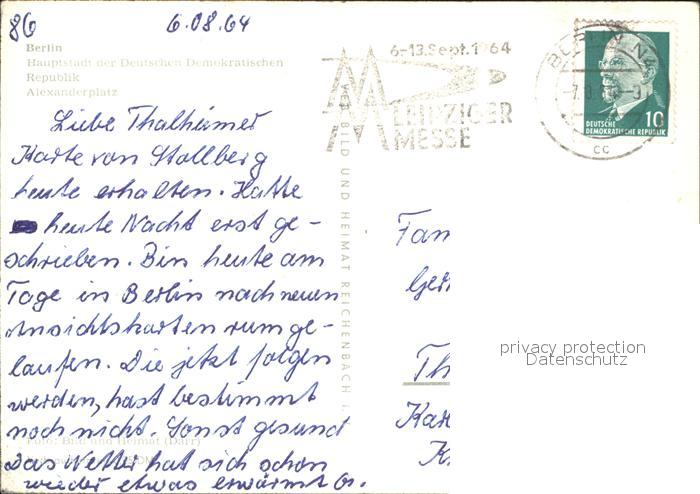 86 6.08.64
Berlin
Hauptstadt der Deutschen Demokratischen
Republik
Alexanderplatz
Liebe Thalheimer
Karte von Stollberg
heute erhalten. Hatte
heute Nacht erst ge-
schrieben. Bin heute am
Tage in Berlin nach neuen
Ansichtskarten rumge-
laufen. Die jetzt folgen
werden, hast bestimmt
noch nicht. Sonst gesund
Das Wetter hat sich schon
wieder etwas erwärmt G.
Foto: Bild und Heimat (Darr)
VEB BILD UND HEIMAT REICHENBACH i.
6.-13. Sept. 1964
LEIPZIGER
MESSE
BERLIN N4
cc
DEUTSCHE
DEMOKRATISCHE REPUBLIK 10
Fam
Ger
Th
Kar
K
privacy protection
Datenschutz